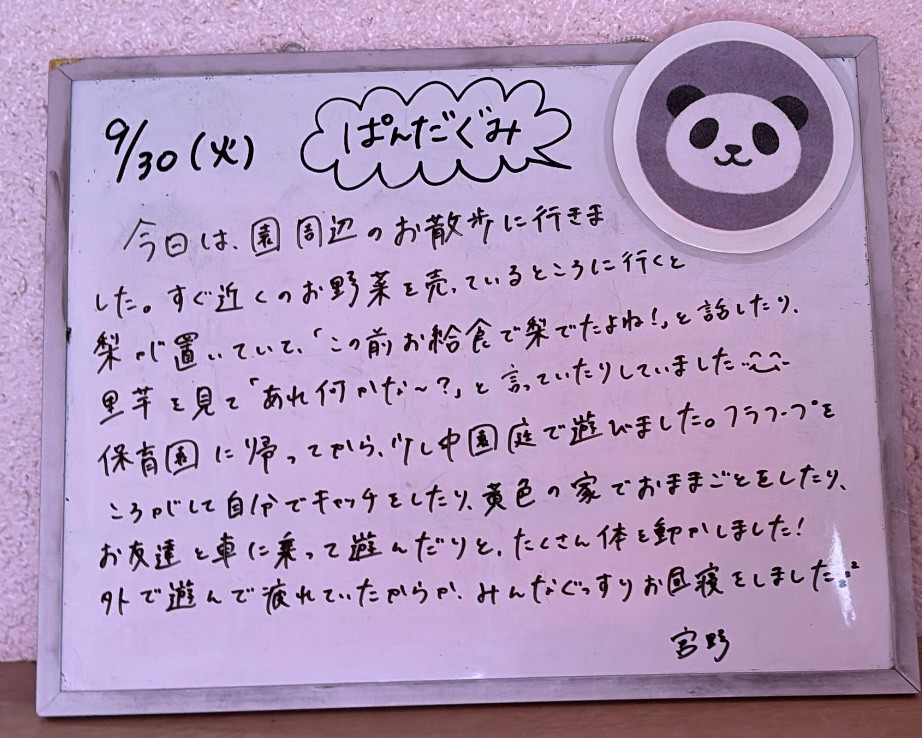 9/30(火)
ぱんだぐみ
今日は、園周辺のお散歩に行きま
した。すぐ近くのお野菜を売っているところに行くと
梨が置いていて、「この前お給食で梨でたよね!」と話したり、
里芋を見て「あれ何かな〜?」と言っていたりしていました
保育園に帰ってから、少し中園庭で遊びました。フラフープを
ころがして自分でキャッチをしたり、黄色の家でおままごとをしたり、
お友達と車に乗って遊んだりと、たくさん体を動かしました!
外で遊んで疲れていたからか、みんなぐっすりお昼寝をしました
宮野